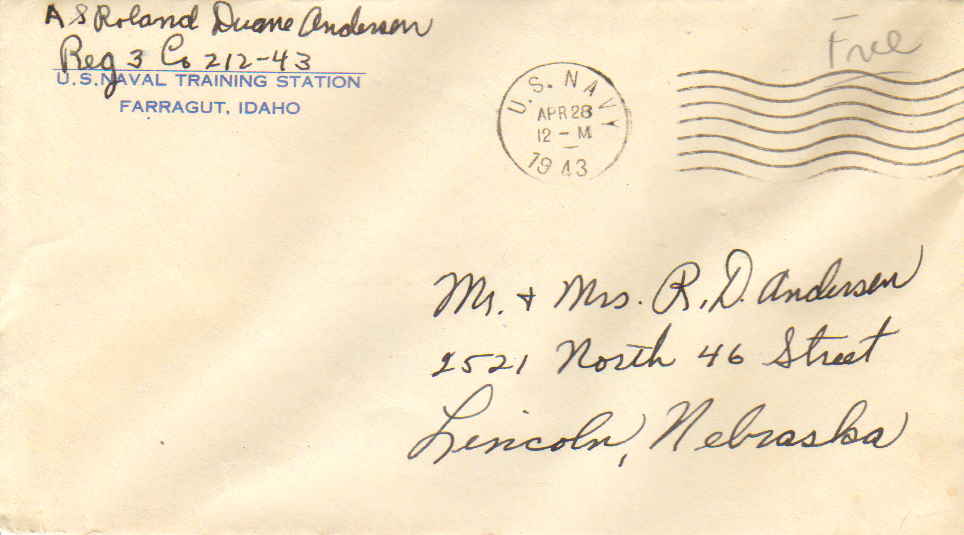 A S Roland Duane Andersen
Reg 3 Co 212-43
U.S. NAVAL TRAINING STATION
FARRAGUT, IDAHO
Free
U.S. NAVY
APR 28
12 - M
1943
Mr. + Mrs. R. D. Andersen
2521 North 46 Street
Lincoln, Nebraska